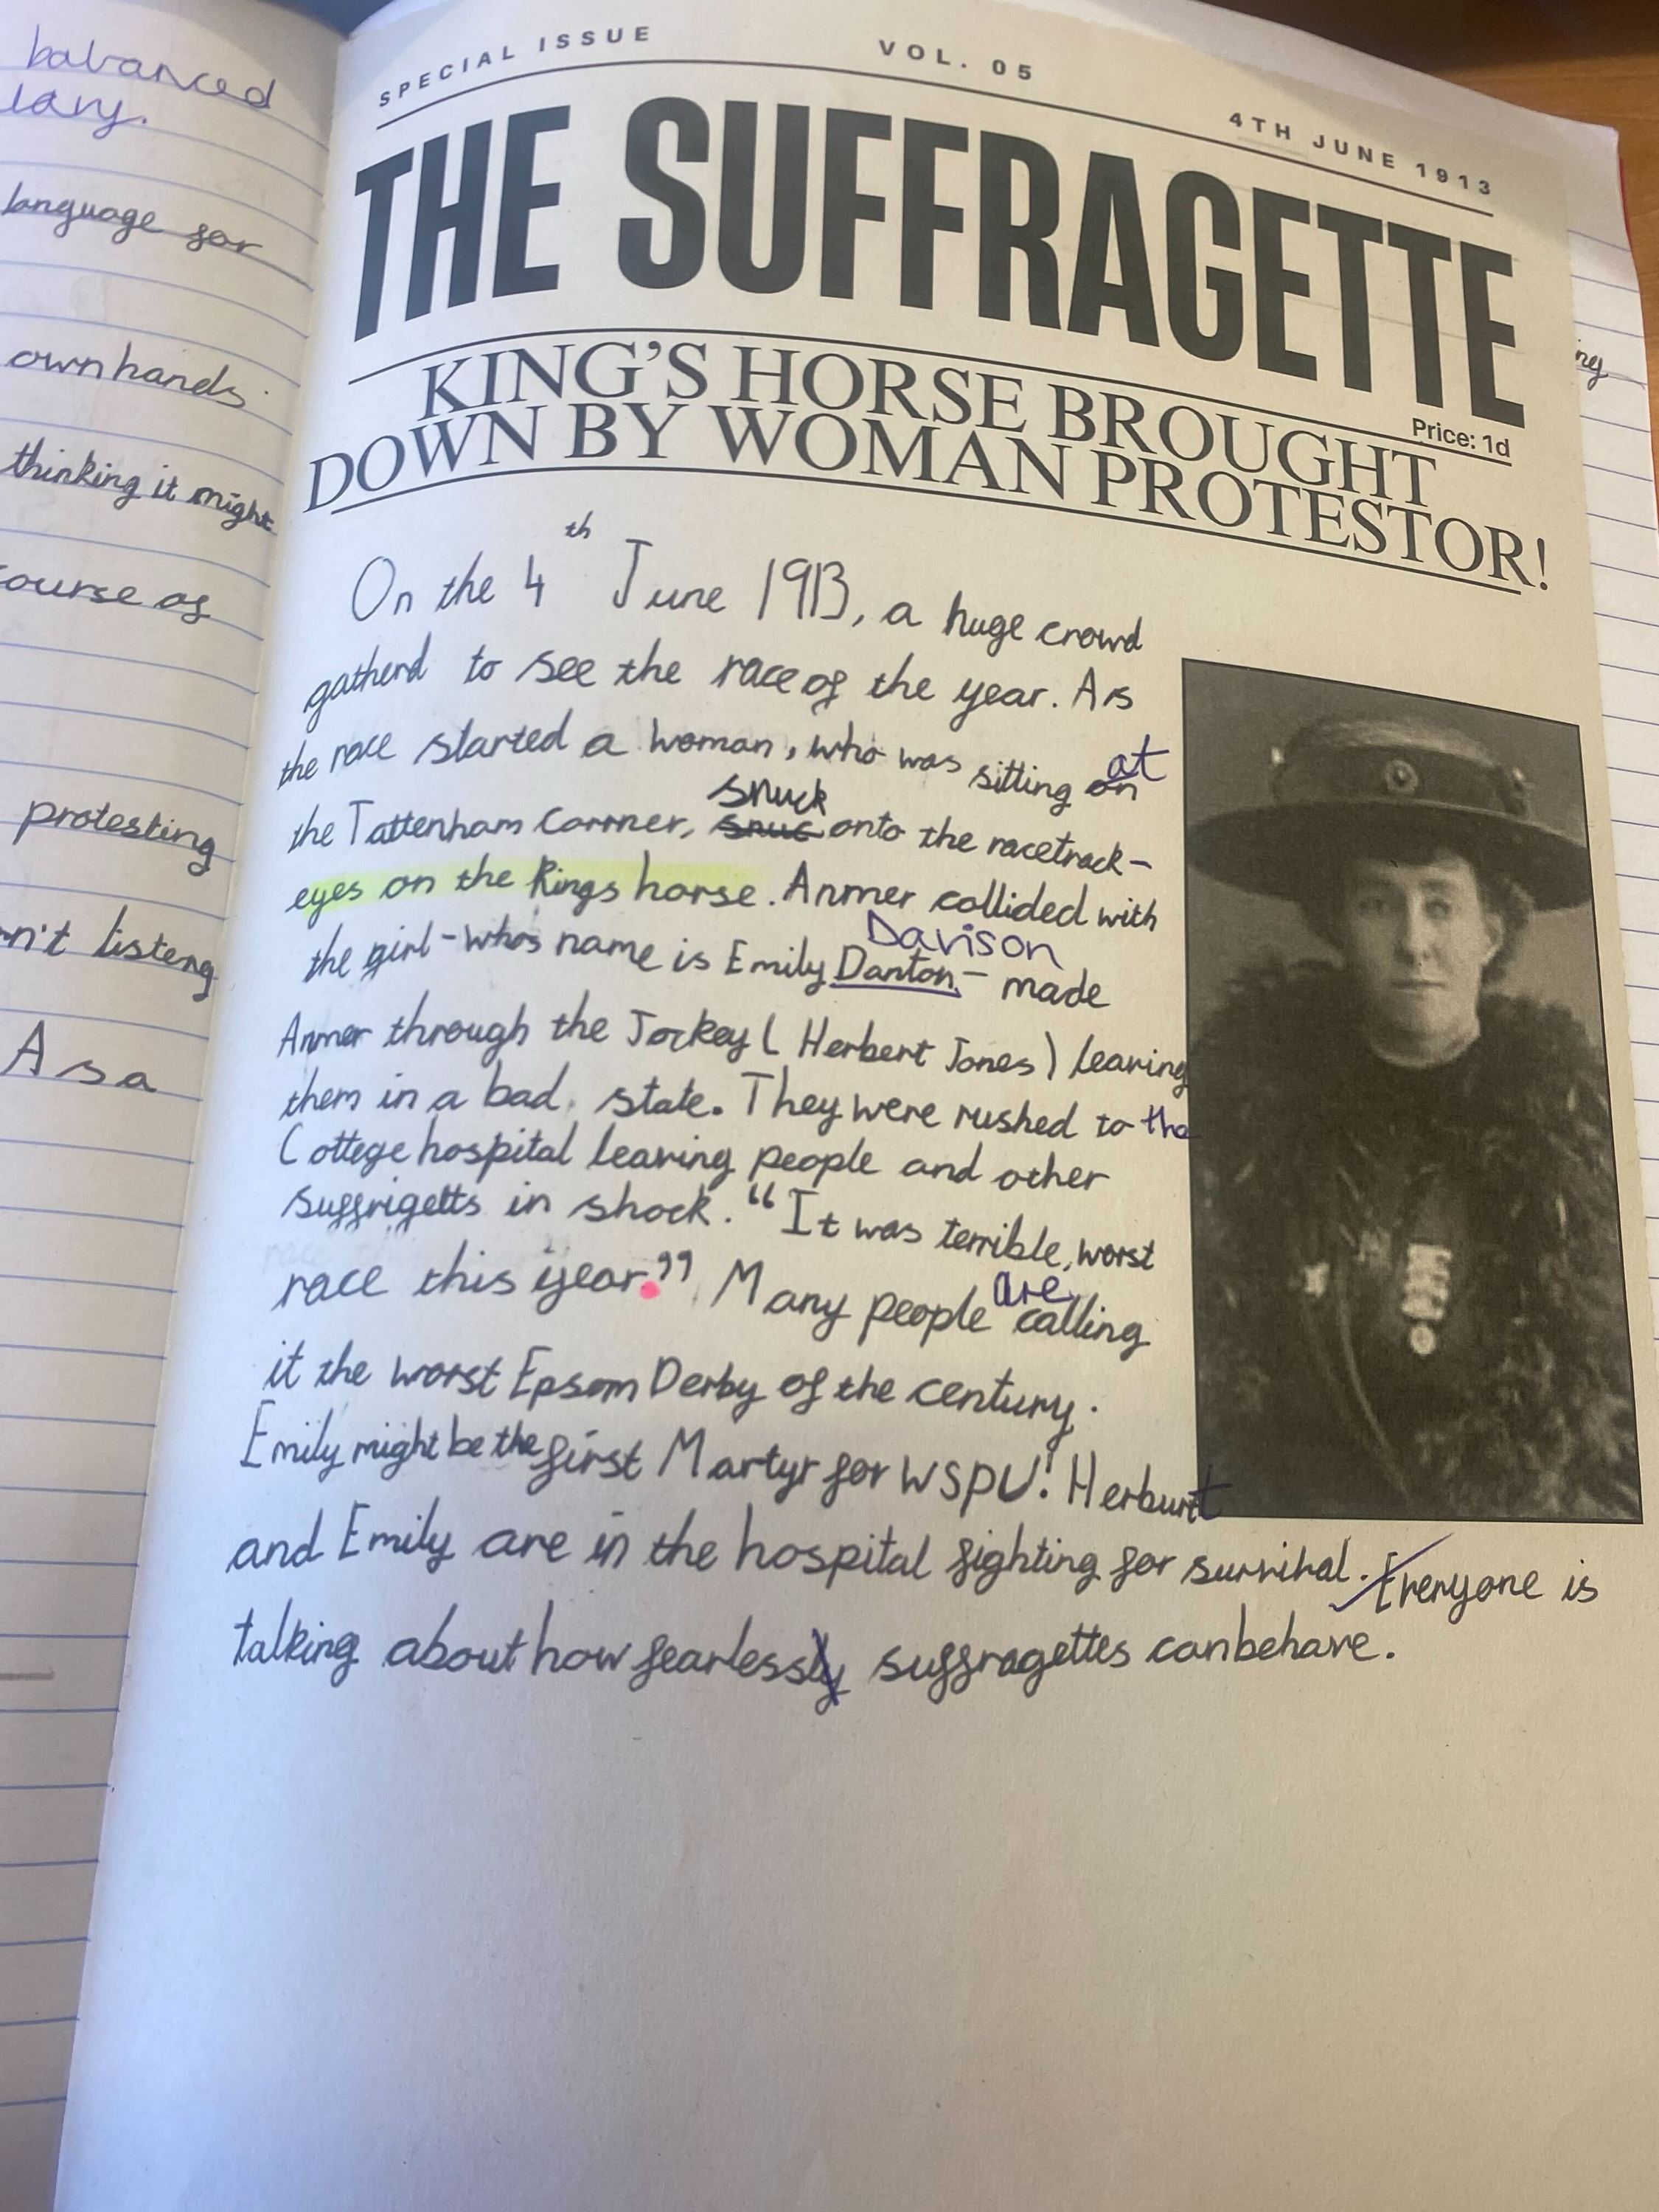 balanced
lary.
language for
own hands.
thinking it might
course of
protesting
n't listeng
As a
SPECIAL ISSUE VOL. 05 4TH JUNE 1913
THE SUFFRAGETTE
Price: 1d
KING'S HORSE BROUGHT
DOWN BY WOMAN PROTESTOR!
On the 4th June 1913, a huge crowd
gatherd to see the race of the year. As
the race started a woman, who was sitting on at
the Tattenham Corrner, snuc snuck onto the racetrack-
eyes on the Kings horse. Anmer collided with
the girl - whos name is Emily Danton Davison - made
Anmer through the Jockey (Herbert Jones) leaving
them in a bad state. They were rushed to the
Cottege hospital leaving people and other
suffrigetts in shock. "It was terrible, worst
race this year." Many people are calling
it the worst Epsom Derby of the century.
Emily might be the first Martyr for WSPU! Herburt
and Emily are in the hospital fighting for survival. Everyone is
talking about how fearlessly suffragettes can behave.
ng